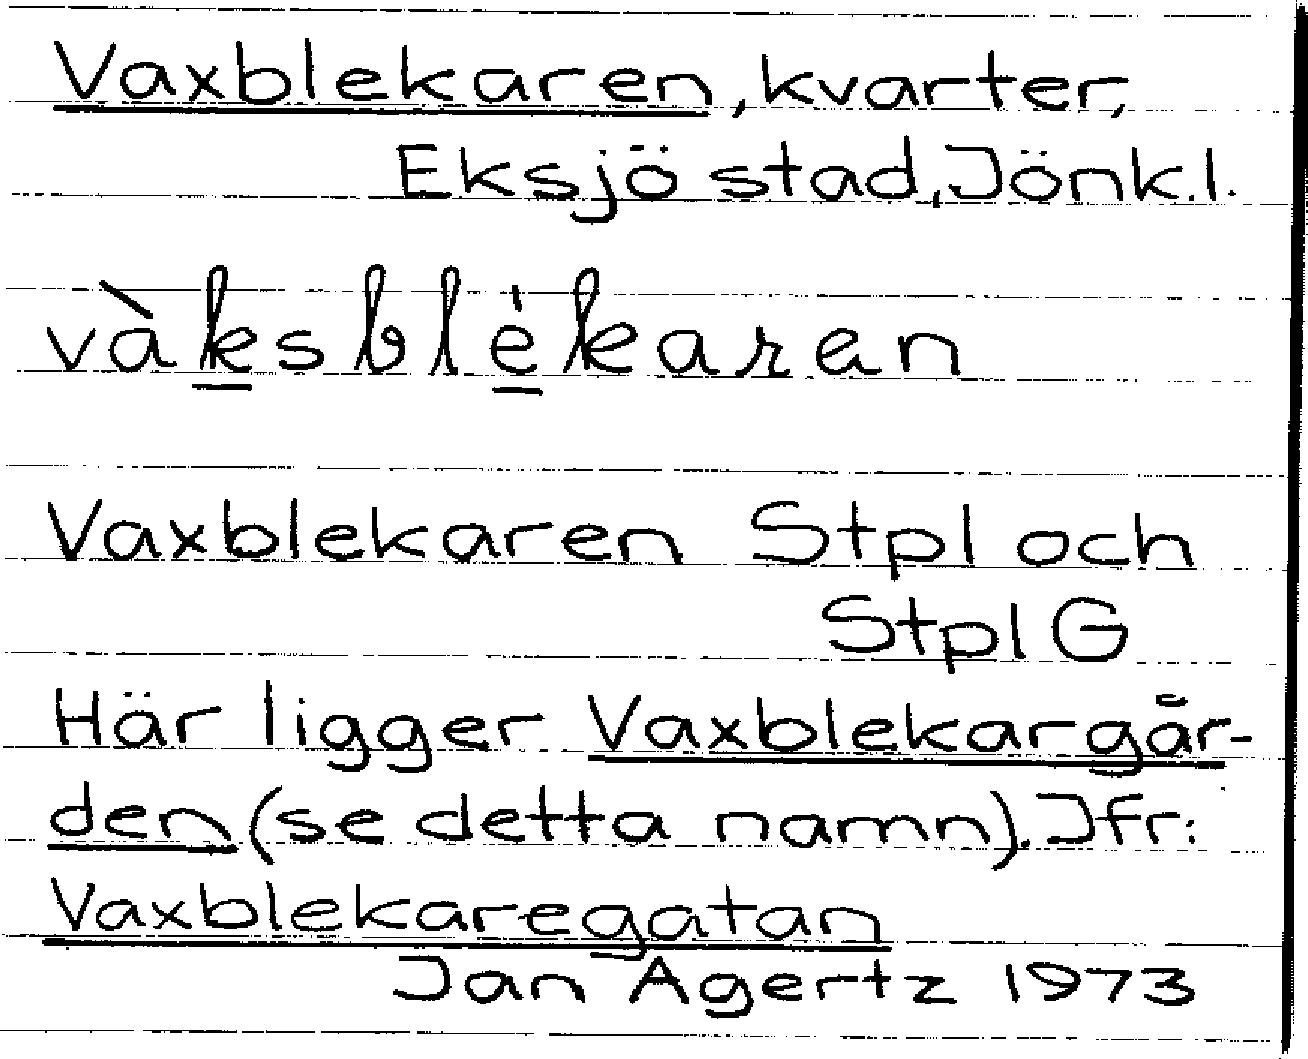 Vaxblekaren, kvarter,
Eksjö stad, Jönk.l.
vàksblékaren
Vaxblekaren Stpl och
Stpl G
Här ligger Vaxblekargår-
den (se detta namn). Jfr:
Vaxblekaregatan
Jan Agertz 1973